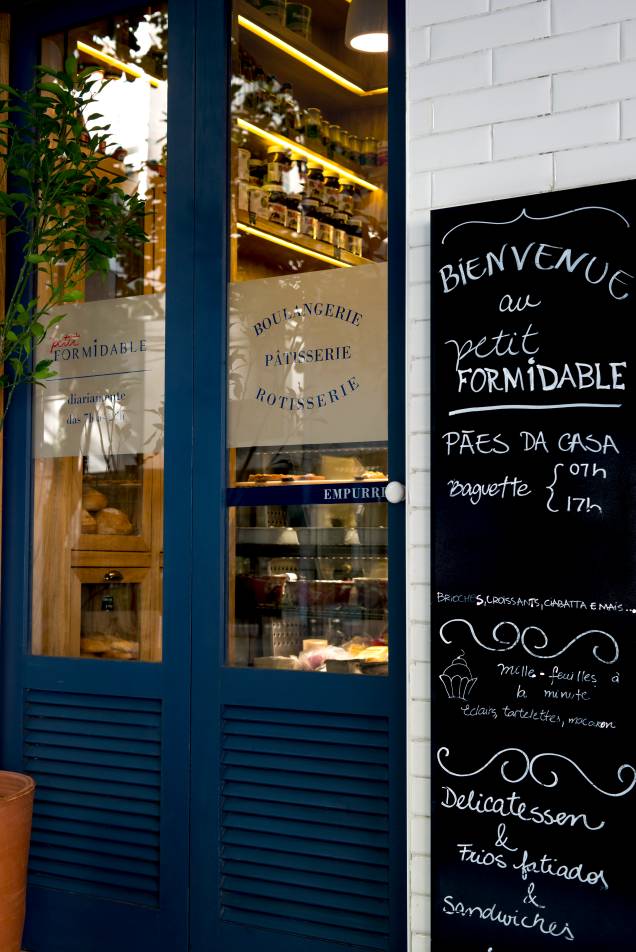 petit
FORMIDABLE
diariamente
das 7h
BOULANGERIE
PÂTISSERIE
ROTISSERIE
EMPURRE
BiENVENUE
au
petit
FORMiDABLE
PÃES DA CASA
Baguette { 07h
17h
BRIOCHES, CROISSANTS, CIABATTA E MAIS...
Mille-feuilles à
la minute
éclairs, tartelettes, macaron
Delicatessen
&
Frios fatiados
&
sandwiches